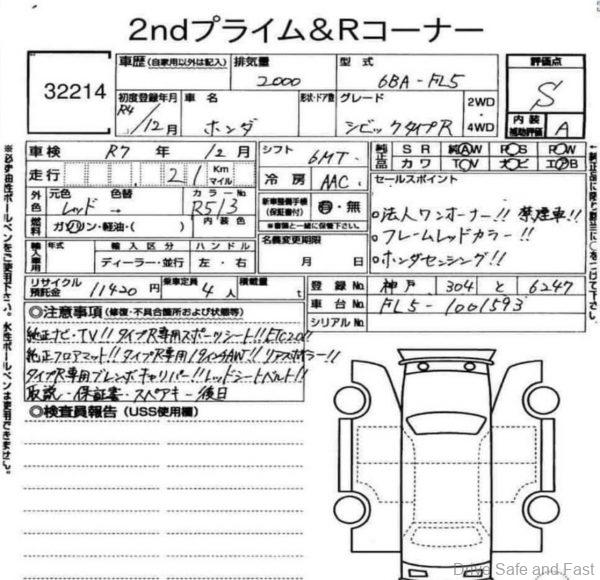 2ndプライム＆Rコーナー
32214
車歴 (自家用以外は記入) 排気量 2000 型式 6BA-FL5 評価点 S
初度登録年月 R4/12月 車名 ホンダ 形状・ドア数 グレード シビックタイプR 2WD・4WD 内装補助評価 A
車検 R7年12月 シフト 6MT 純正品 SR 純AW PS PW
カワ TV ナビ エアB
走行 21 Km マイル 冷房 AAC セールスポイント
外色 元色 レッド → 色替 カラーNo. R513 新車整備手帳(保証書付) 有・無
※書類と一緒に保管して下さい
燃料 ガソリン・軽油・( )
名義変更期限 月 日
輸入車用 年式 輸入区分 ディーラー・並行 ハンドル 左・右
○法人ワンオーナー!! 禁煙車!!
○フレームレッドカラー!!
○ホンダセンシング!!
リサイクル預託金 11420円 乗車定員 4人 積載量 t
登録No. 神戸 304 と 6247
車台No. FL5-1001593
シリアルNo.
◎注意事項 (修復・不具合箇所および状態等)
純正ナビ・TV!! タイプR専用スポーツシート!! ETC2.0!!
純正フロアマット!! タイプR専用19インチAW!! リアスポイラー!!
タイプR専用ブレンボキャリパー!! レッドシートベルト!!
取説・保証書・スペアキー後日
◎検査員報告 (USS使用欄)
※必ず油性ボールペンをご使用下さい。水性ボールペンは使用できません。
Drive Safe and Fast